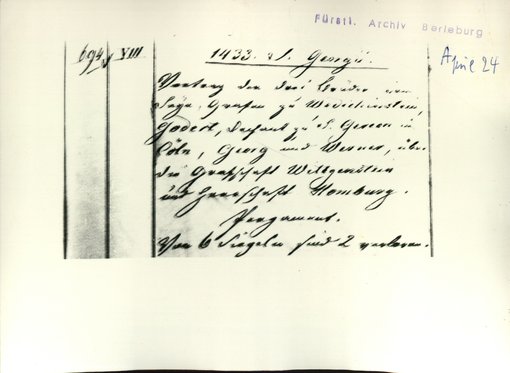 Fürstl. Archiv Berleburg
April 24
694 VIII
1433. d. Georgii.
Vertrag der drei Brüder von
Sayn, Grafen zu Wittgenstein,
Godert, Dechant zu St. Gereon in
Cöln, Georg und Werner, über
die Grafschaft Wittgenstein
und Herrschaft Homburg.
Pergament.
Von 6 Siegeln sind 2 verloren.